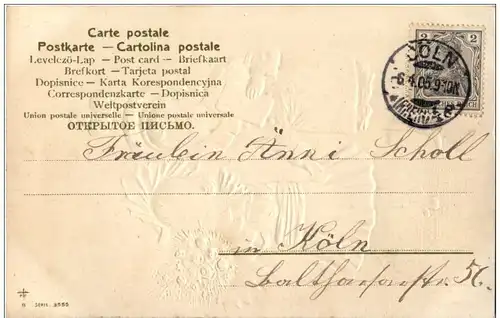 Carte postale
Postkarte — Cartolina postale
Levelező-Lap — Post card — Briefkaart
Brefkort — Tarjeta postal
Dopisnice — Karta Korespondencyjna
Correspondenzkarte — Dopisnica
Weltpostverein
Union postale universelle — Unione postale universale
ОТКРЫТОЕ ПИСЬМО.
2 2
CÖLN
6.4.05.9-10V.
Fräulein Änni Scholl
in Köln
Balthasarstr. 56.